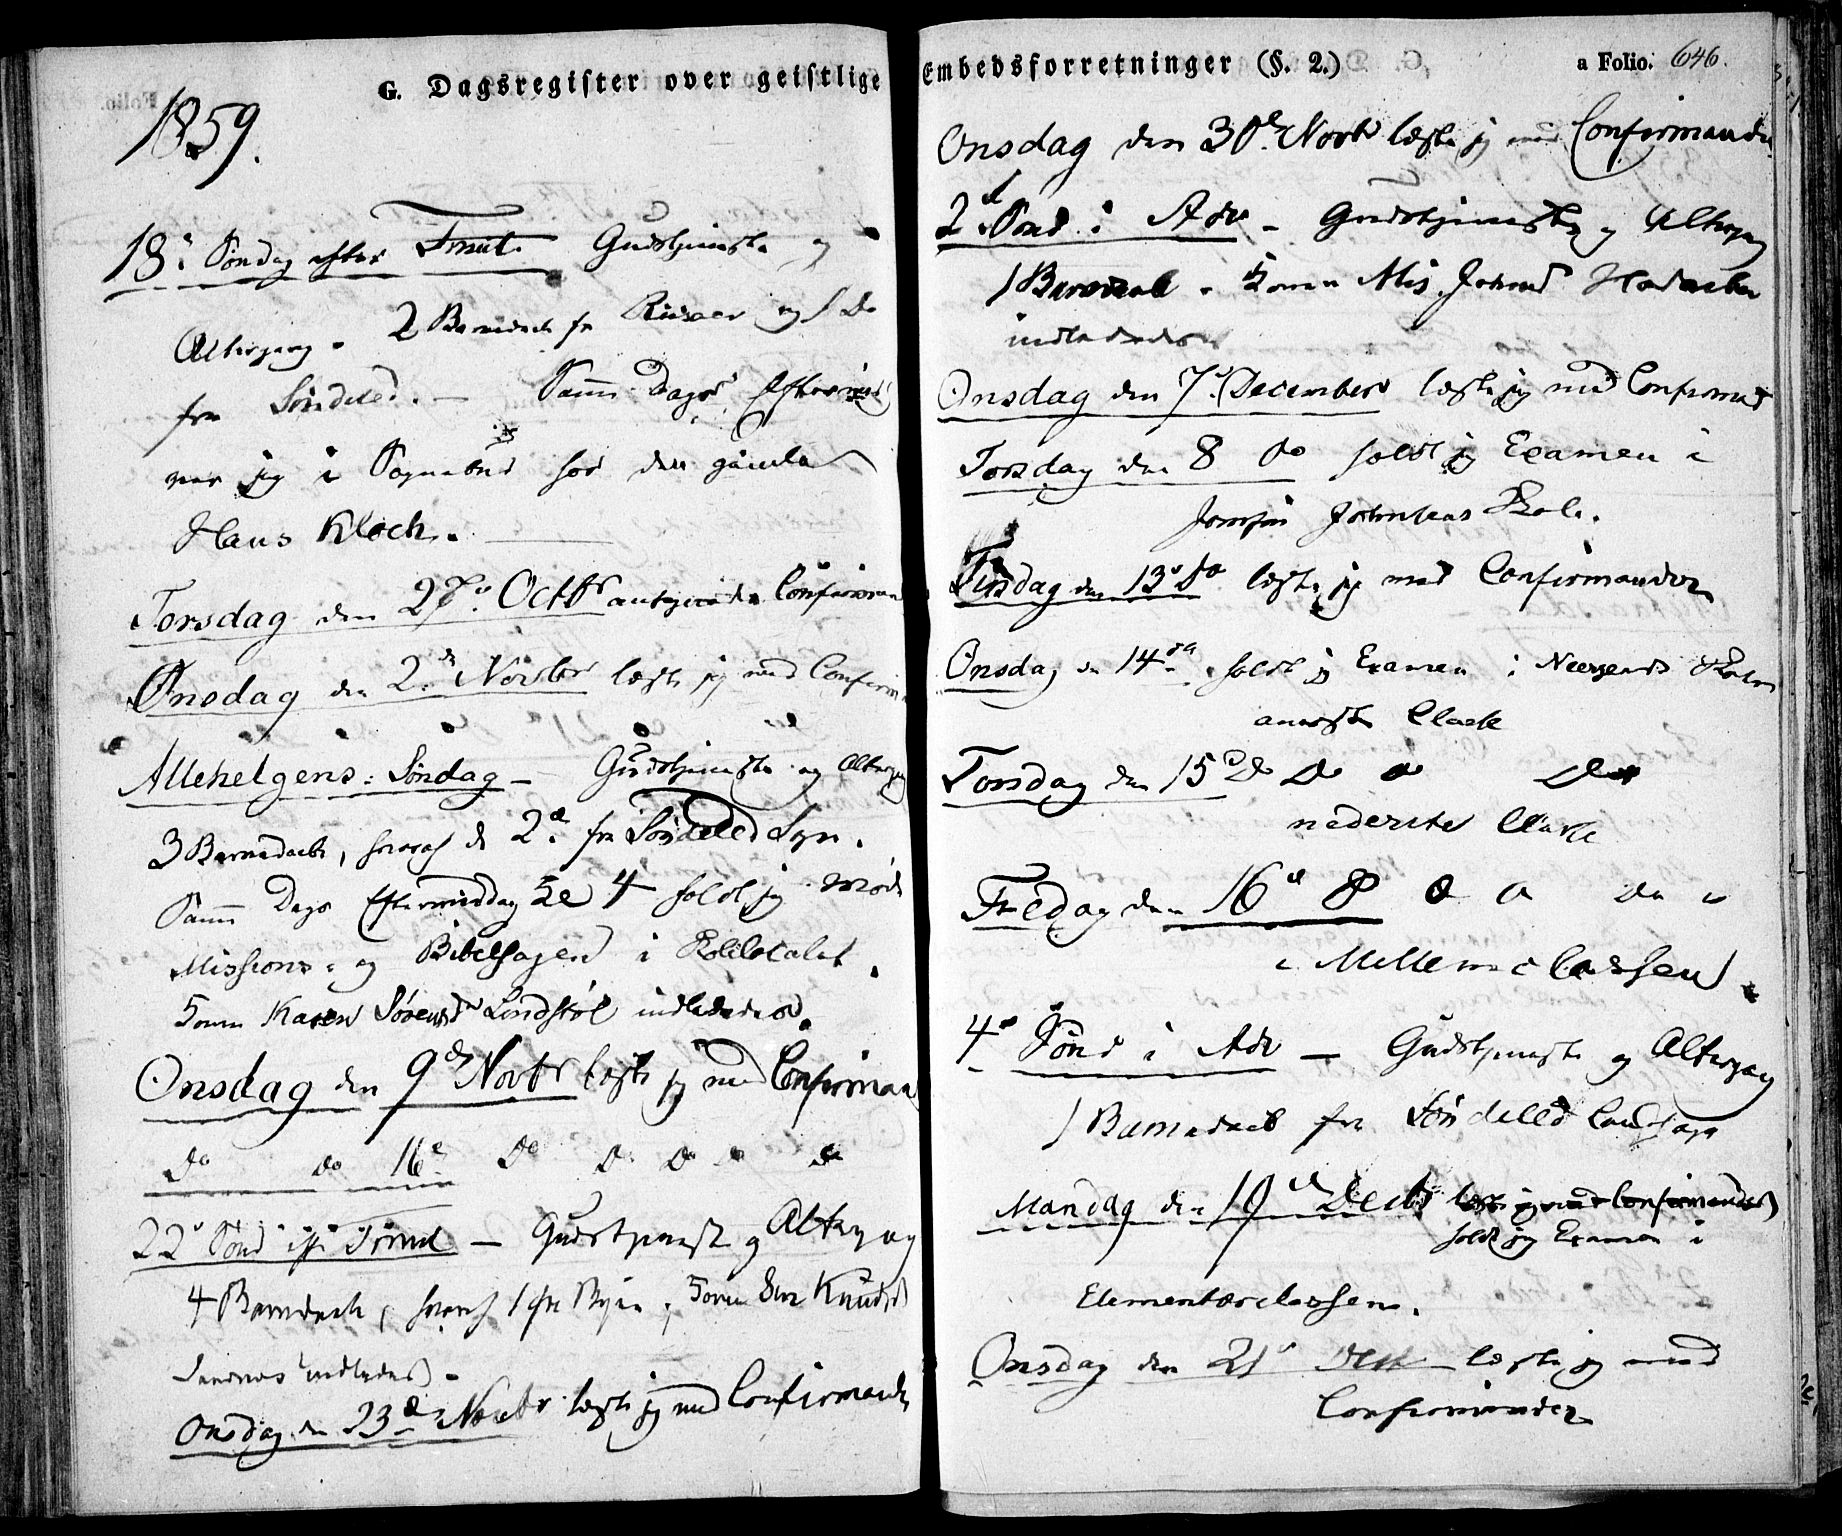 G. Dagsregister over geistlige Embedsforretninger (§. 2.)
a Folio. 646.
1859.
18. Søndag efter Trinit. Gudstjeneste og
Altergang. 2 Barnedaab fr Riisøer og 1 Do
fra Søndeled. — Samme Dags Efterm
var jeg i Sognebud hos den gamle
Hans Kloch.
Torsdag den 27. Octbr antegnede Confirman
Onsdag den 2den Novbr læste jeg med Confirm
Allehelgens-Søndag — Gudstjeneste og Alterg
3 Barnedaab, hvoraf de 2de fra Søndeled Sogn.
Samme Dags Eftermiddag Kl 4 holdt jeg Møde
Missions- og Bibelsagen i Skolelocalet.
Konen Karen Sørensdr Lindstøl indlededes.
Onsdag den 9de Novbr læste jeg med Confirman
Do Do 16de Do Do Do Do
22de Sønd eft Trinit — Gudstjeneste og Altergang
4 Barnedaab, hvoraf 1 fra Byen, Konen Knudsd
indledet.
Onsdag den 23de Novbr læste jeg med Confirmande
Onsdag den 30te Novbr læste jeg med Confirmander
2d Sønd i Adv — Gudstjeneste og Altergang
1 Barnedaab. Konen
indlededes
Onsdag den 7de December læste jeg med Confirmand
Torsdag den 8 Do holdt jeg Examen i
Jomfru Johnsens Skole.
Tirsdag den 13de Do læste jeg med Confirmander
Onsdag den 14de holdt jeg Examen i Skole
øverste Classe
Torsdag den 15de Do Do Do
nederste Classe
Fredag den 16de Do Do
i Mellemclassen.
4de Sønd i Adv — Gudstjeneste og Altergang
1 Barnedaab fra Søndeled Landsogn
Mandag den 19de Decbr læste jeg med Confirmander
holdt jeg Examen i
Elementærclassen.
Onsdag den 21de Decbr læste jeg med
Confirmander